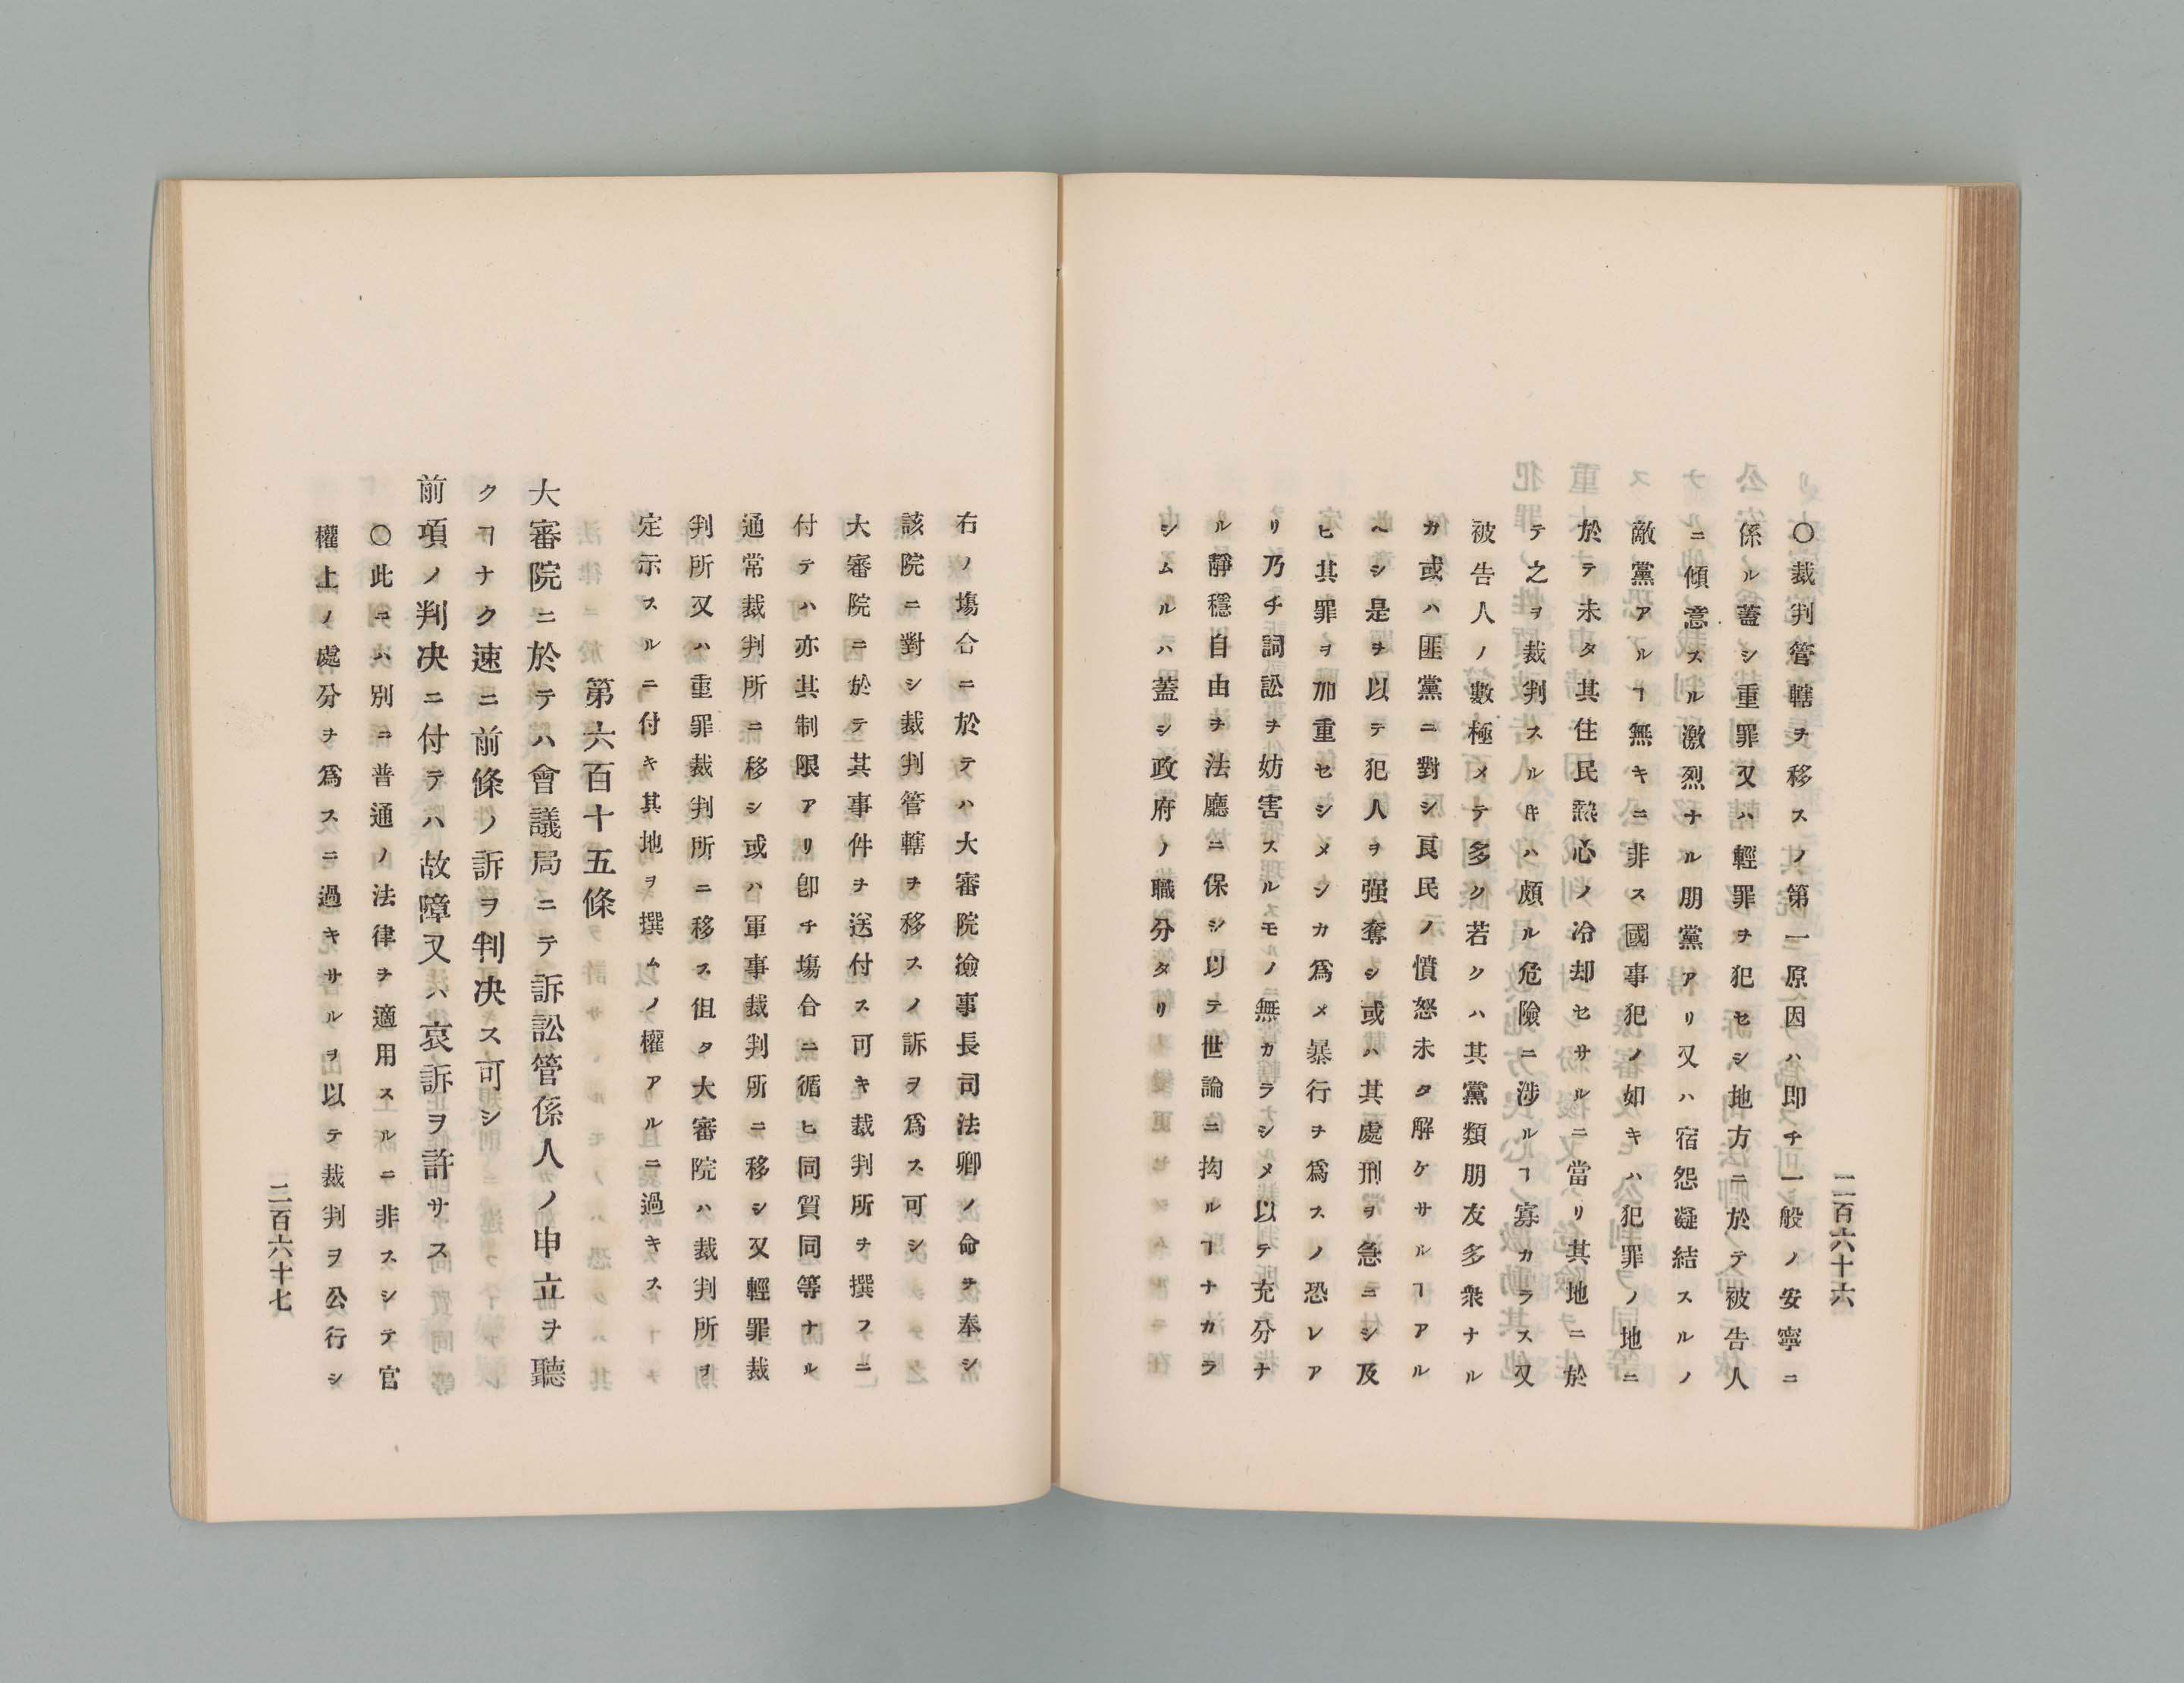 二百六十六
〇裁判管轄ヲ移スノ第一原因ハ即チ一般ノ安寧ニ
係ル蓋シ重罪又ハ輕罪ヲ犯セシ地方ニ於テ被告人
ニ傾意スル激烈ナル朋黨アリ又ハ宿怨凝結スルノ
敵黨アルヿ無キニ非ス國事犯ノ如キハ犯罪ノ地ニ
於テ未タ其住民熱心ノ冷却セサルニ當リ其地ニ於
テ之ヲ裁判スル𪜈ハ頗ル危險ニ渉ルヿ寡カラス又
被告人ノ數極メテ多ク若クハ其黨類朋友多衆ナル
カ或ハ匪黨ニ對シ良民ノ憤怒未タ解ケサルヿアル
ヘシ是ヲ以テ犯人ヲ强奪シ或ハ其處刑ヲ急ニシ及
ヒ其罪ヲ加重セシメシカ爲メ暴行ヲ爲スノ恐レア
リ乃チ詞訟ヲ妨害スルモノ無カラシメ以テ充分ナ
ル靜穩自由ヲ法廳ニ保シ以テ世論ニ拘ルヿナカラ
シムルハ蓋シ政府ノ職分タリ
右ノ塲合ニ於テハ大審院撿事長司法卿ノ命ヲ奉シ
該院ニ對シ裁判管轄ヲ移スノ訴ヲ爲ス可シ
大審院ニ於テ其事件ヲ送付ス可キ裁判所ヲ撰フニ
付テハ亦其制限アリ卽チ塲合ニ循ヒ同質同等ナル
通常裁判所ニ移シ或ハ軍事裁判所ニ移シ又輕罪裁
判所又ハ重罪裁判所ニ移ス但タ大審院ハ裁判所ヲ
定示スルニ付キ其地ヲ撰ムノ權アルニ過キス
第六百十五條
大審院ニ於テハ會議局ニテ訴訟管係人ノ申立ヲ聽
クヿナク速ニ前條ノ訴ヲ判决ス可シ
前項ノ判决ニ付テハ故障又ハ哀訴ヲ許サス
〇此ニハ別ニ普通ノ法律ヲ適用スルニ非スシテ官
權上ノ處分ヲ爲スニ過キサルヲ以テ裁判ヲ公行シ
二百六十七